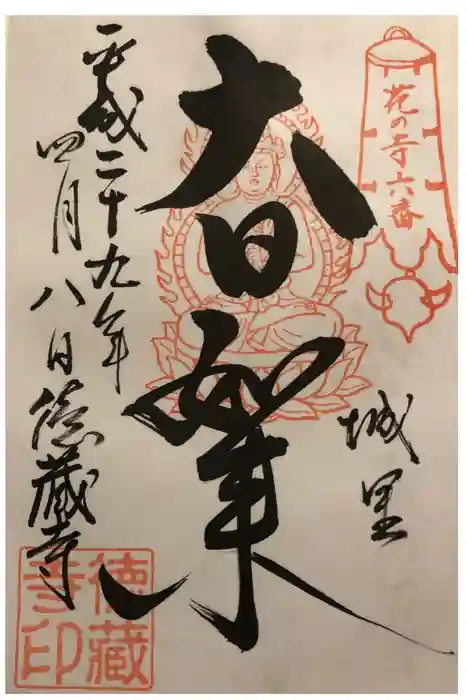 花の寺六番
城里
大日如来
平成二十九年
四月八日徳蔵寺
徳蔵
寺印